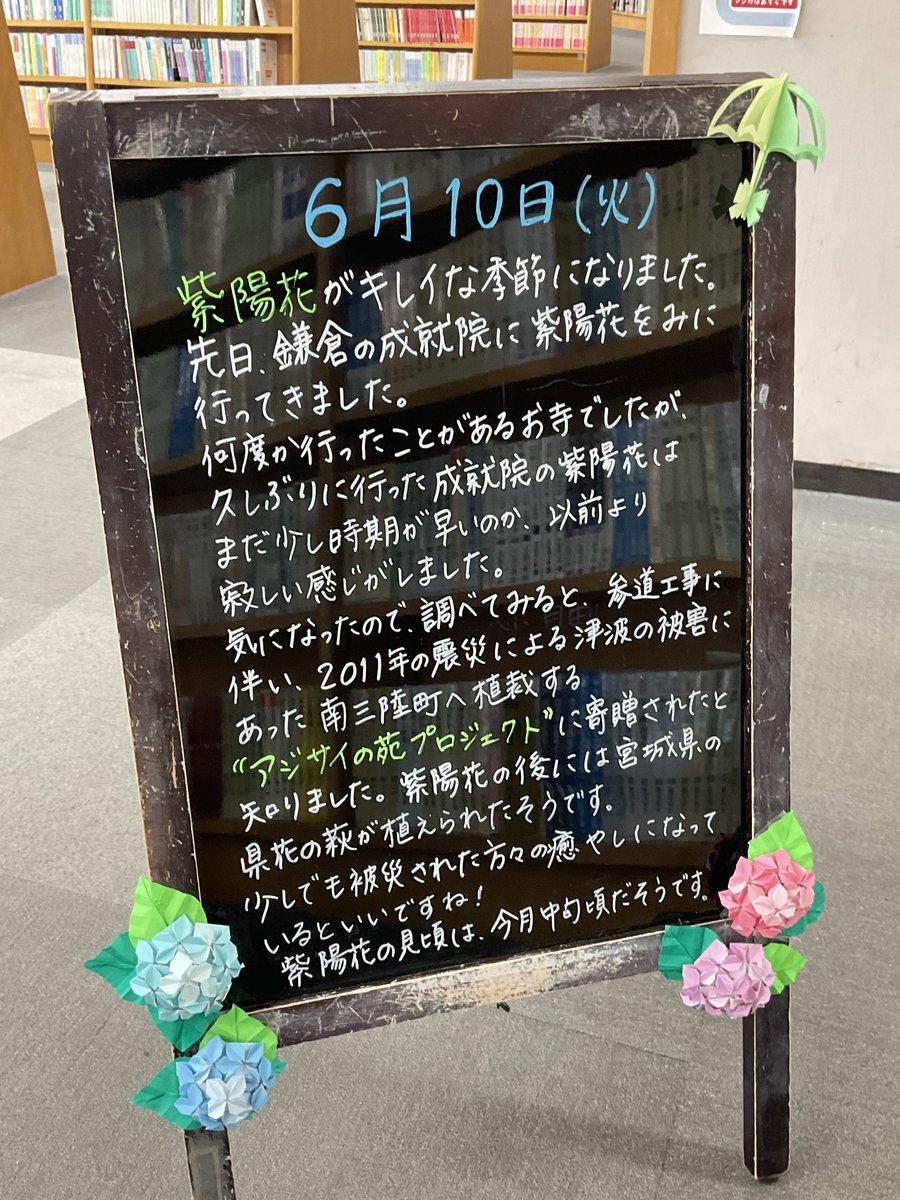 6月10日(火)
紫陽花がキレイな季節になりました。
先日、鎌倉の成就院に紫陽花をみに
行ってきました。
何度か行ったことがあるお寺でしたが、
久しぶりに行った成就院の紫陽花は
まだ少し時期が早いのか、以前より
寂しい感じがしました。
気になったので、調べてみると、参道工事に
伴い、2011年の震災による津波の被害に
あった南三陸町へ植栽する
“アジサイの苑プロジェクト”に寄贈されたと
知りました。紫陽花の後には宮城県の
県花の萩が植えられたそうです。
少しでも被災された方々の癒やしになって
いるといいですね!
紫陽花の見頃は、今月中旬頃だそうです。